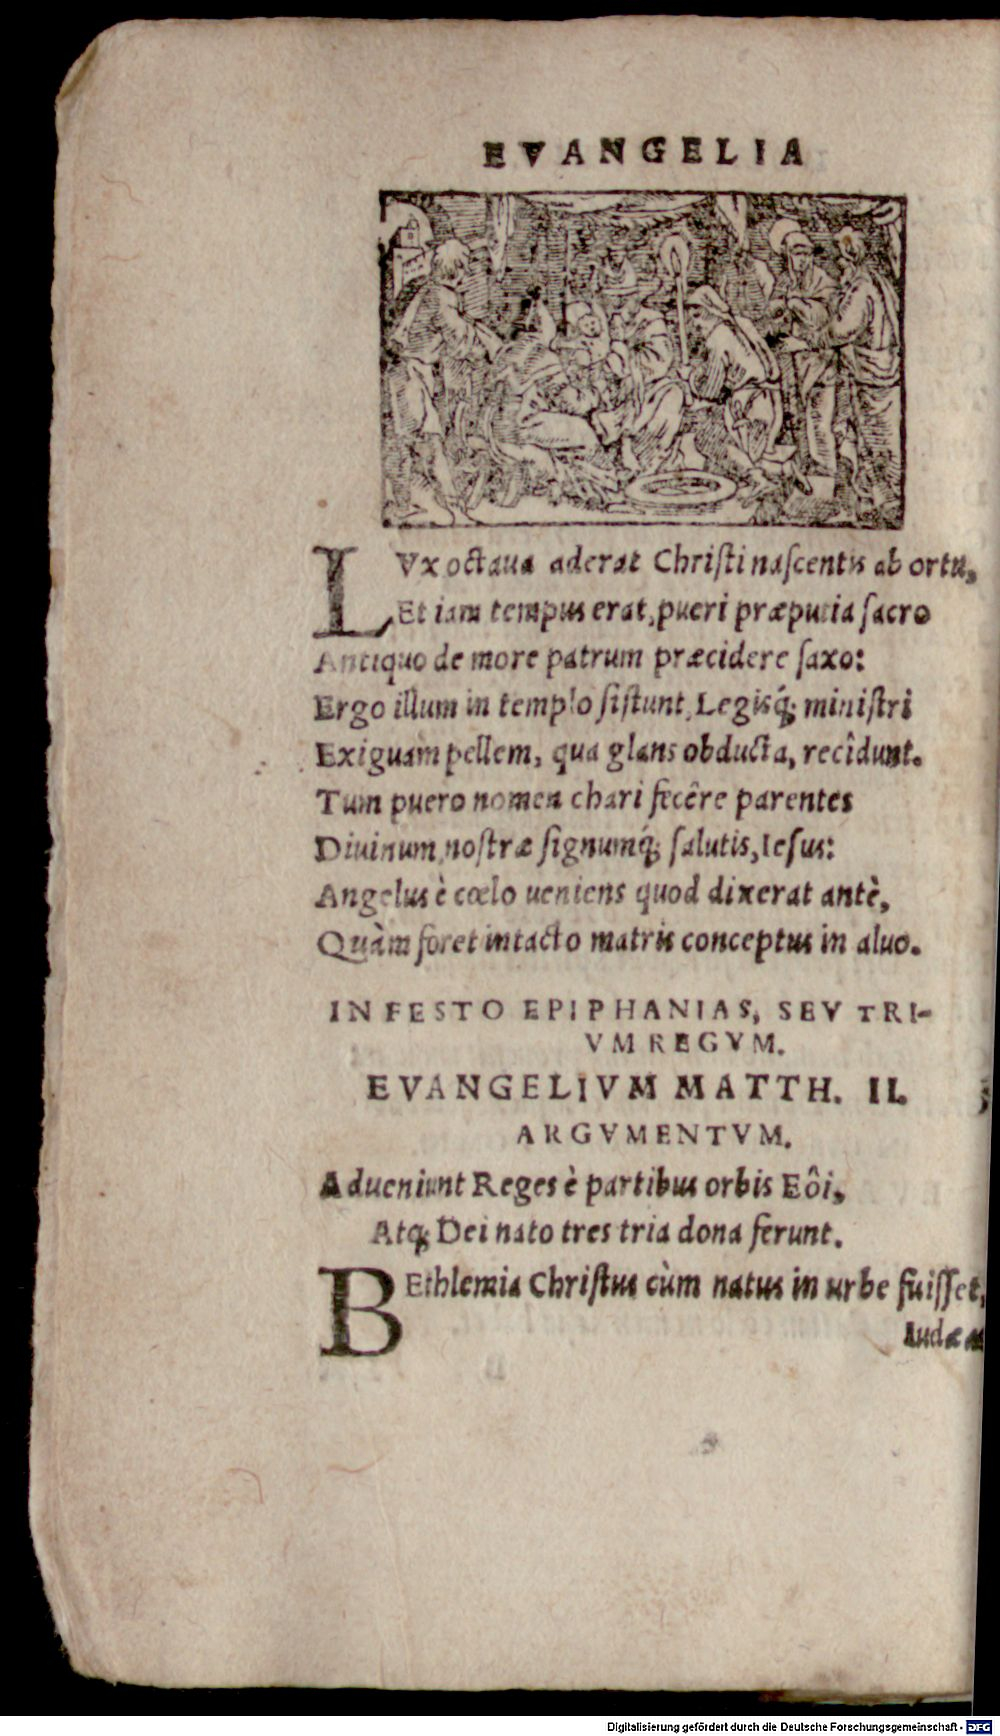 EVANGELIA
LVx octaua aderat Christi nascentis ab ortu,
Et iam tempus erat, pueri præputia sacro
Antiquo de more patrum præcidere saxo:
Ergo illum in templo sistunt, Legisq́; ministri
Exiguam pellem, qua glans obducta, recîdunt.
Tum puero nomen chari fecêre parentes
Diuinum, nostræ signumq́; salutis, Iesus:
Angelus è cœlo ueniens quod dixerat antè,
Quàm foret intacto matris conceptus in aluo.
IN FESTO EPIPHANIAS, SEV TRI-
VM REGVM.
EVANGELIVM MATTH. II.
ARGVMENTVM.
Adueniunt Reges è partibus orbis Eôi,
Atq; Dei nato tres tria dona ferunt.
BEthlemia Christus cùm natus in urbe fuisset,
Iudææ
Digitalisierung gefördert durch die Deutsche Forschungsgemeinschaft - DFG